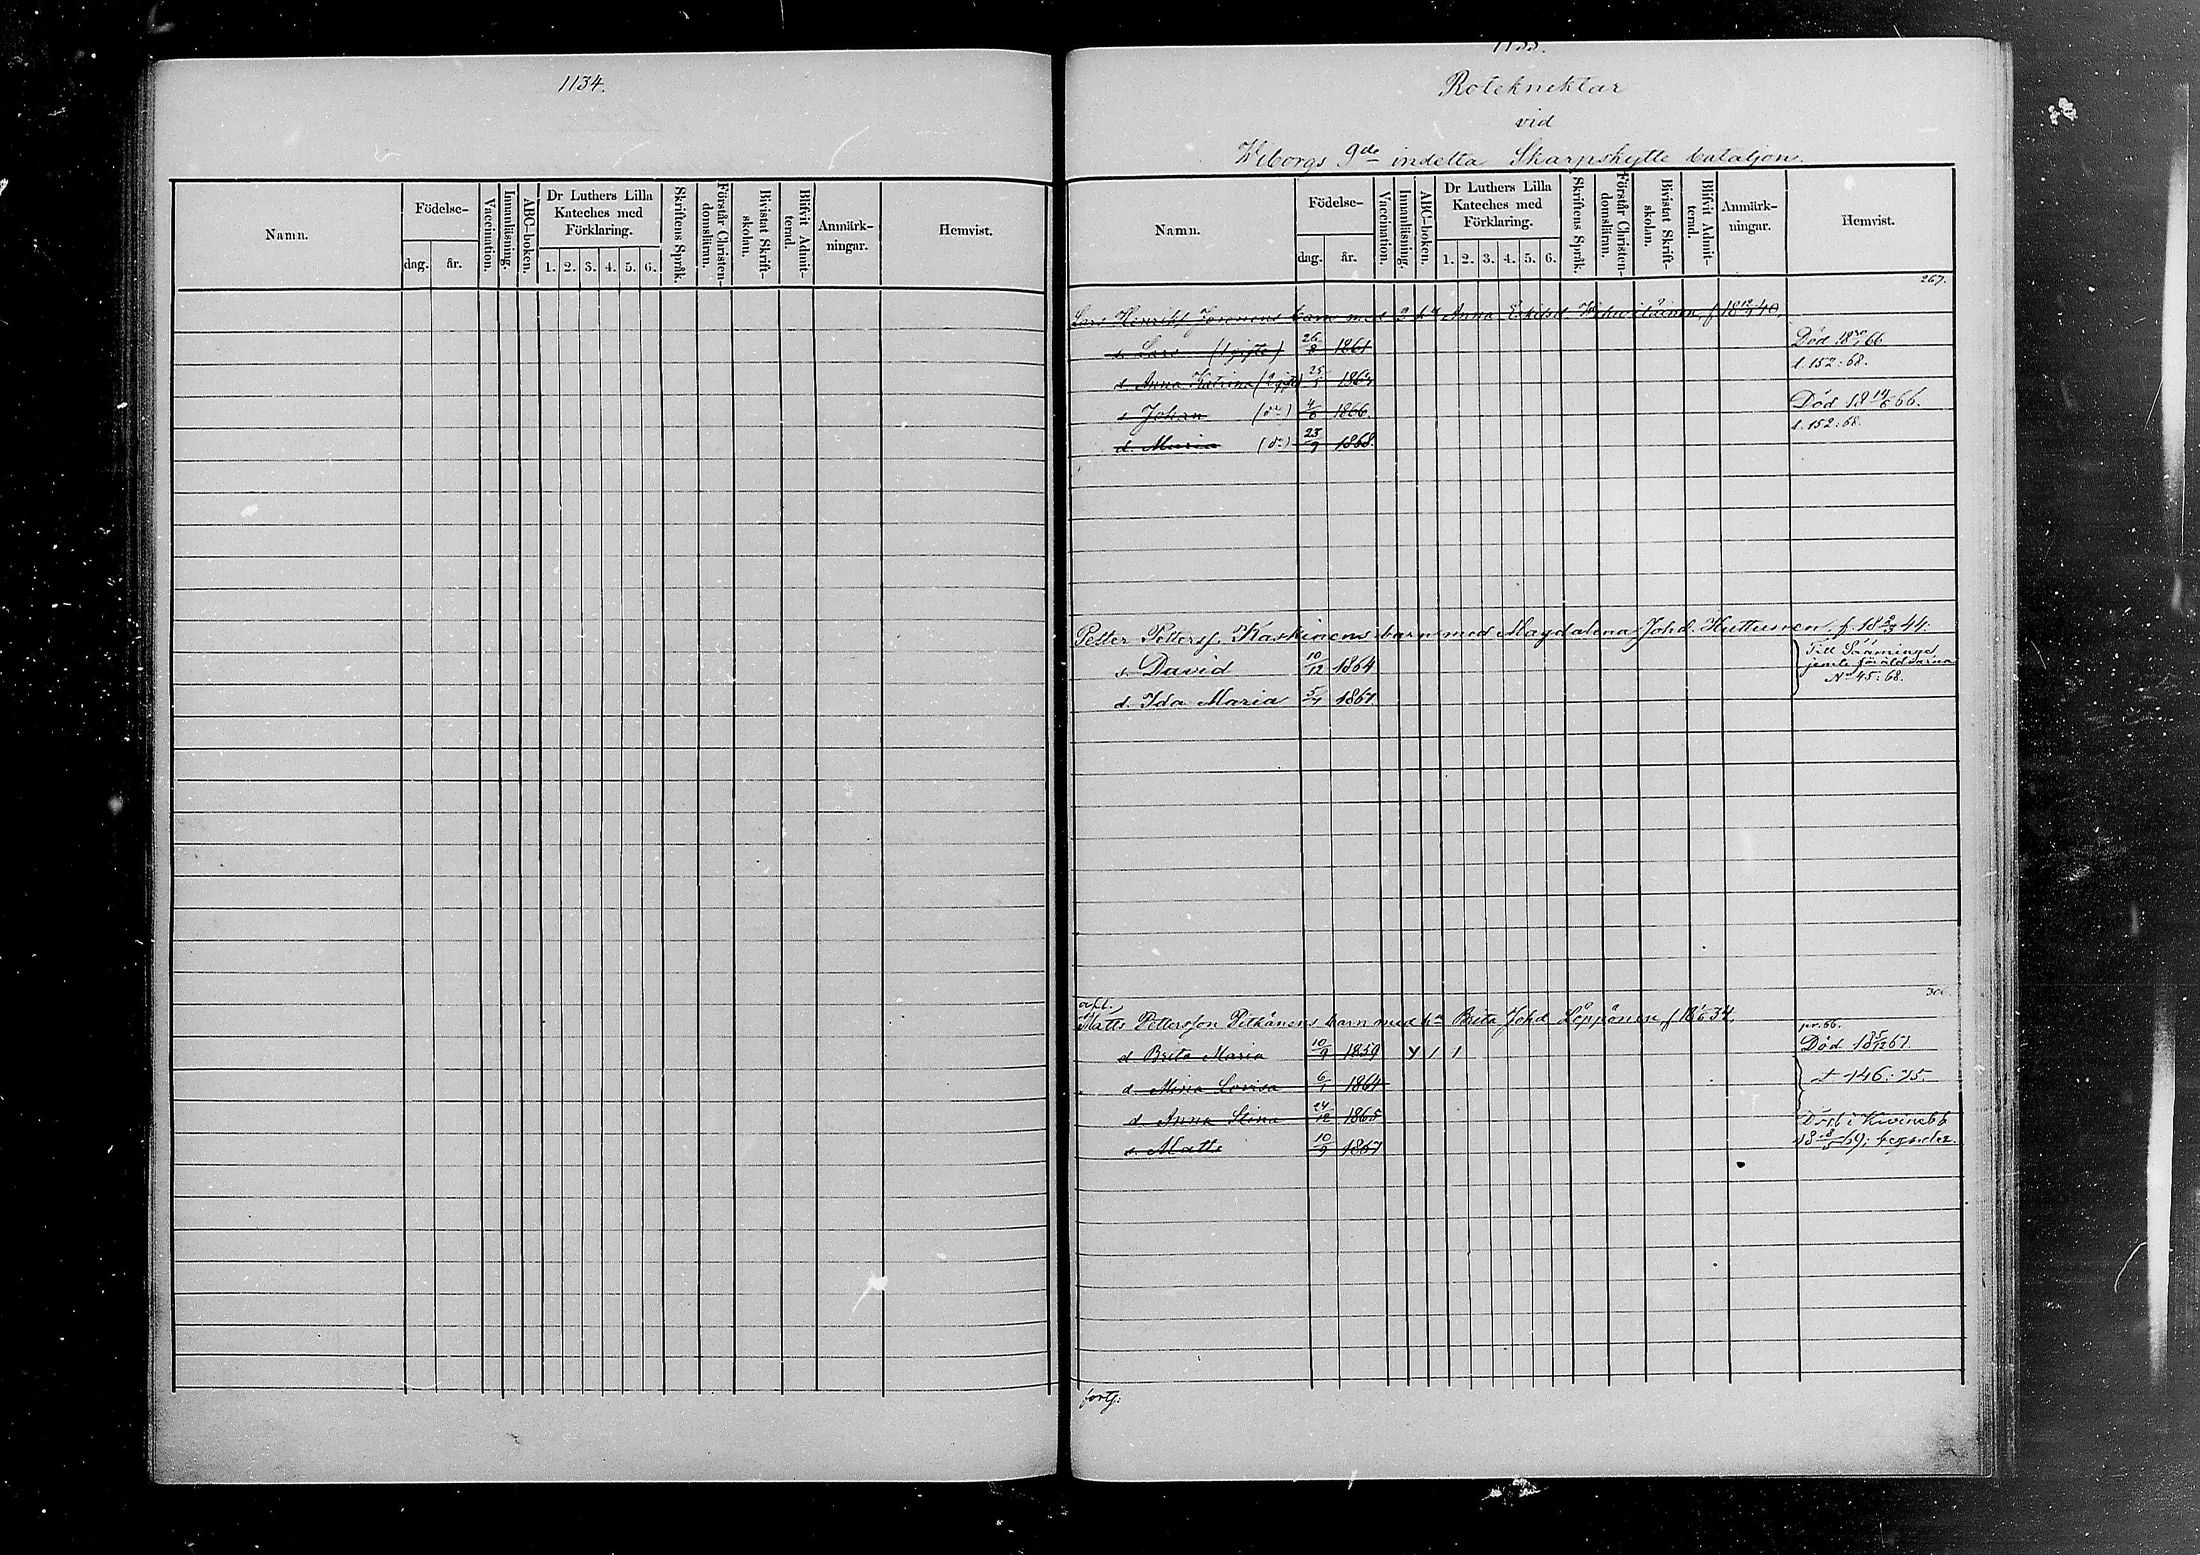 1134.
Namn.
Födelse-
dag.
år.
Vaccination.
Innanläsning.
ABC-boken.
Dr Luthers Lilla
Kateches med
Förklaring.
1. 2. 3. 4. 5. 6.
Skriftens Språk.
Förstår Christen-
domsläran.
Bivistat Skrift-
skolan.
Blifvit Admit-
terad.
Anmärk-
ningar.
Hemvist.
Roteknektar
vid
Wiborgs 9de indelta Skarpskytte bataljon.
Namn.
Födelse-
dag.
år.
Vaccination.
Innanläsning.
ABC-boken.
Dr Luthers Lilla
Kateches med
Förklaring.
1. 2. 3. 4. 5. 6.
Skriftens Språk.
Förstår Christen-
domsläran.
Bivistat Skrift-
skolan.
Blifvit Admit-
terad.
Anmärk-
ningar.
Hemvist.
267.
Lars barn med 2 h Anna f 18 40.
s. Lars (1 gifte) 26/8 1861 Död 18 66
d. Anna Katrina 25/5 t. 152:68.
s. Johan (do) 1866. Död 18 14/6 66.
d. Maria (do) 23/9 1868. t. 152:68.
Petter Petterss. Kaskinens barn med Magdalena Johd. Huttunen, f. 18 44.
s. David 10/12 1864 Till Sääminge
jemte föräldrarna
No 45:68.
d. Ida Maria 5/4 1867
afl.
Matts Pettersson Pitkänens barn med h Brita Johd Löppönen f 18 34.
pr. 66.
d Brita Maria 10/9 1859 Y 1 1 Död 18 5/12 67.
d. Lovisa 6/1 1864 t 146:75.
d. Anna Stina 24/12 1865
s. Matts 10/9 1867 69;
fortf: